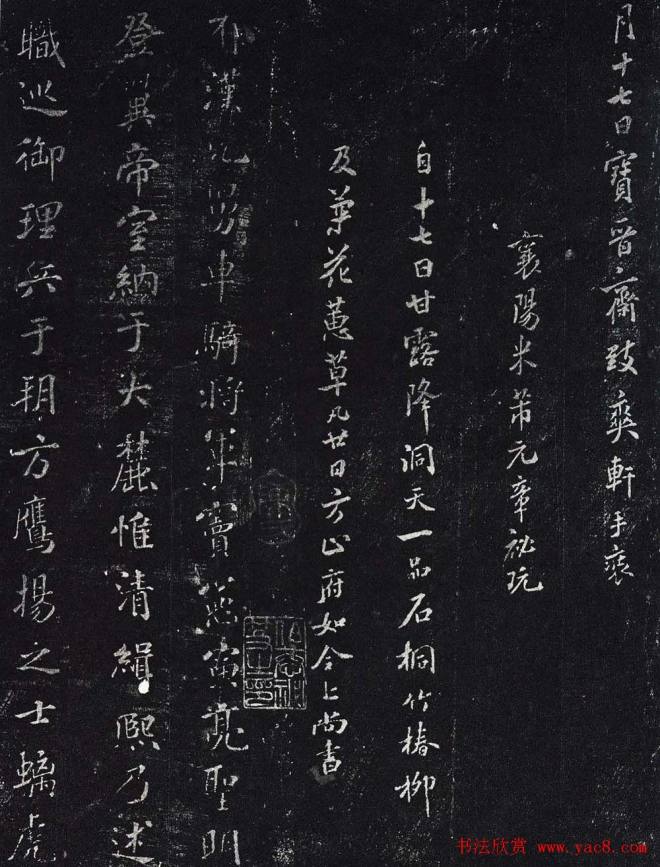 月十七日寶晉齋致爽軒手裝
襄陽米芾元章祕玩
自十七日甘露降洞天一品石桐竹椿柳
及葉花蕙草凡廿日方止府如令上尚書
漢元舅車騎將軍竇憲寅亮聖明
登翼帝室納于大麓惟清緝熙乃述
職巡御理兵于朔方鷹揚之士螭虎
书法欣赏 www.yac8.com